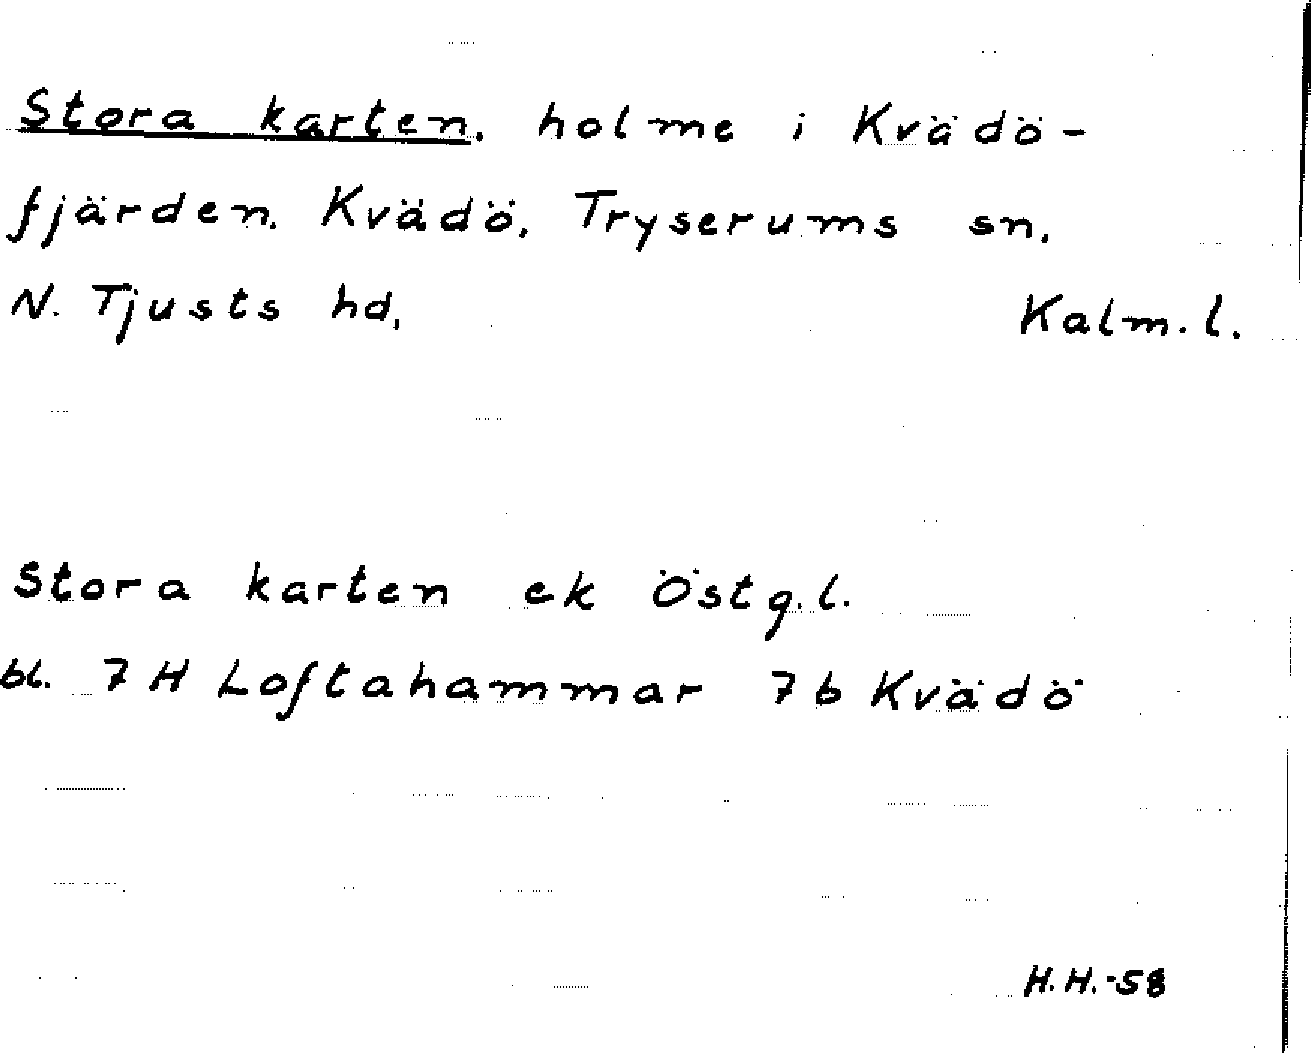 Stora karten, holme i Kvädö-
fjärden, Kvädö, Tryserums sn,
N. Tjusts hd, Kalm. l.
Stora karten ek Östg. l.
bl. 7 H Loftahammar 7 b Kvädö
H. H. -58